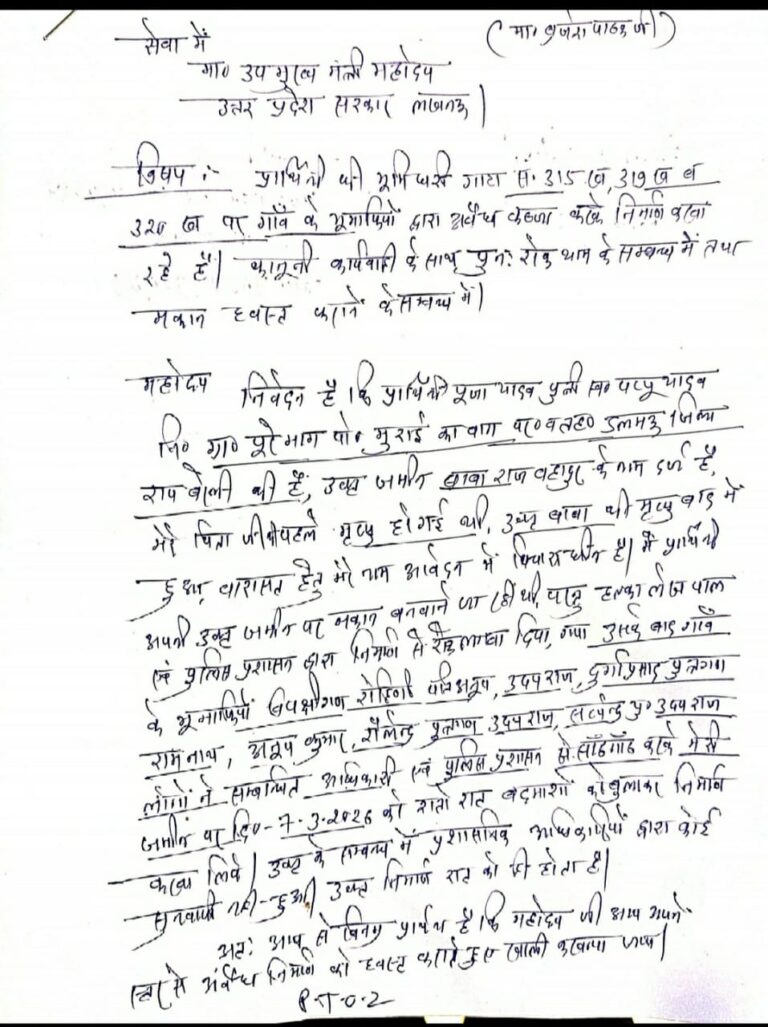 (मा० बृजेश पाठक जी)
सेवा में
मा० उप मुख्य मंत्री महोदय
उत्तर प्रदेश सरकार लखनऊ।
विषय :- प्रार्थिनी की भूमिधरी गाटा सं. 315 ख, 319 ख व
320 ख पर गाँव के भूमाफियों द्वारा अवैध कब्जा करके निर्माण करवा
रहे हैं। कानूनी कार्यवाही के साथ पुनः रोकथाम के सम्बन्ध में तथा
मकान ध्वस्त कराने के सम्बन्ध में।
महोदय निवेदन है कि प्रार्थिनी पूजा यादव पुत्री स्व० पप्पू यादव
नि० ग्रा० पूरे भाग पो० मुराई का बाग पर० व तह० डलमऊ जिला
राय बरेली की हैं, उक्त जमीन बाबा राज बहादुर के नाम दर्ज है,
मेरे पिता जी की पहले मृत्यु हो गई थी, उक्त बाबा की मृत्यु बाद में
हुआ, वारासत हेतु मेरे नाम आवेदन में विचाराधीन है। मैं प्रार्थिनी
अपनी उक्त जमीन पर मकान बनवाने जा रही थी, परन्तु हल्का लेखपाल
एवं पुलिस प्रशासन द्वारा निर्माण से रोक लगवा दिया, गया उसके बाद गाँव
के भूमाफियों विपक्षीगण रोहिणी पत्नि अनूप, उदयराज, दुर्गाप्रसाद पुत्रगण
रामनाथ, अनूप कुमार, शैलेन्द्र पुत्रगण उदयराज, सत्येन्द्र पु० उदयराज
लोगों ने सम्बन्धित अधिकारी एवं पुलिस प्रशासन से साँठगाँठ करके मेरी
जमीन पर दि०- 7-3-2026 को रातो रात बदमाशों को बुलाकर निर्माण
करवा लिये। उक्त के सम्बन्ध में प्रशासनिक अधिकारियों द्वारा कोई
सुनवायी नही हुआ उक्त निर्माण रात को ही होता है।
अतः आप से विनम्र प्रार्थना है कि महोदय जी आप अपने
स्तर से अवैध निर्माण को ध्वस्त कराते हुए खाली करवाया जाय।
P.T.O.2